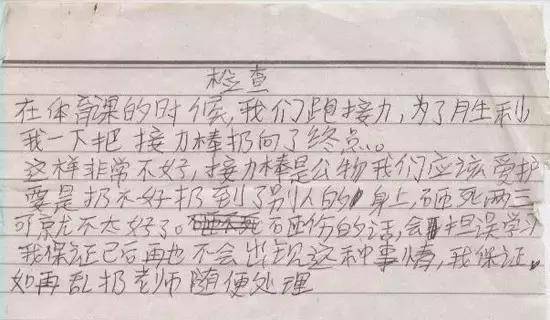 检查
在体育课的时候,我们跑接力,为了胜利
我一下把接力棒扔向了终点。
这样非常不好,接力棒是公物我们应该爱护
要是扔不好扔到了别人的身上,砸死两三
可就不太好了。砸伤的话,会担误学习
我保证已后再也不会出现这种事情,我保证。
如再乱扔老师随便处理